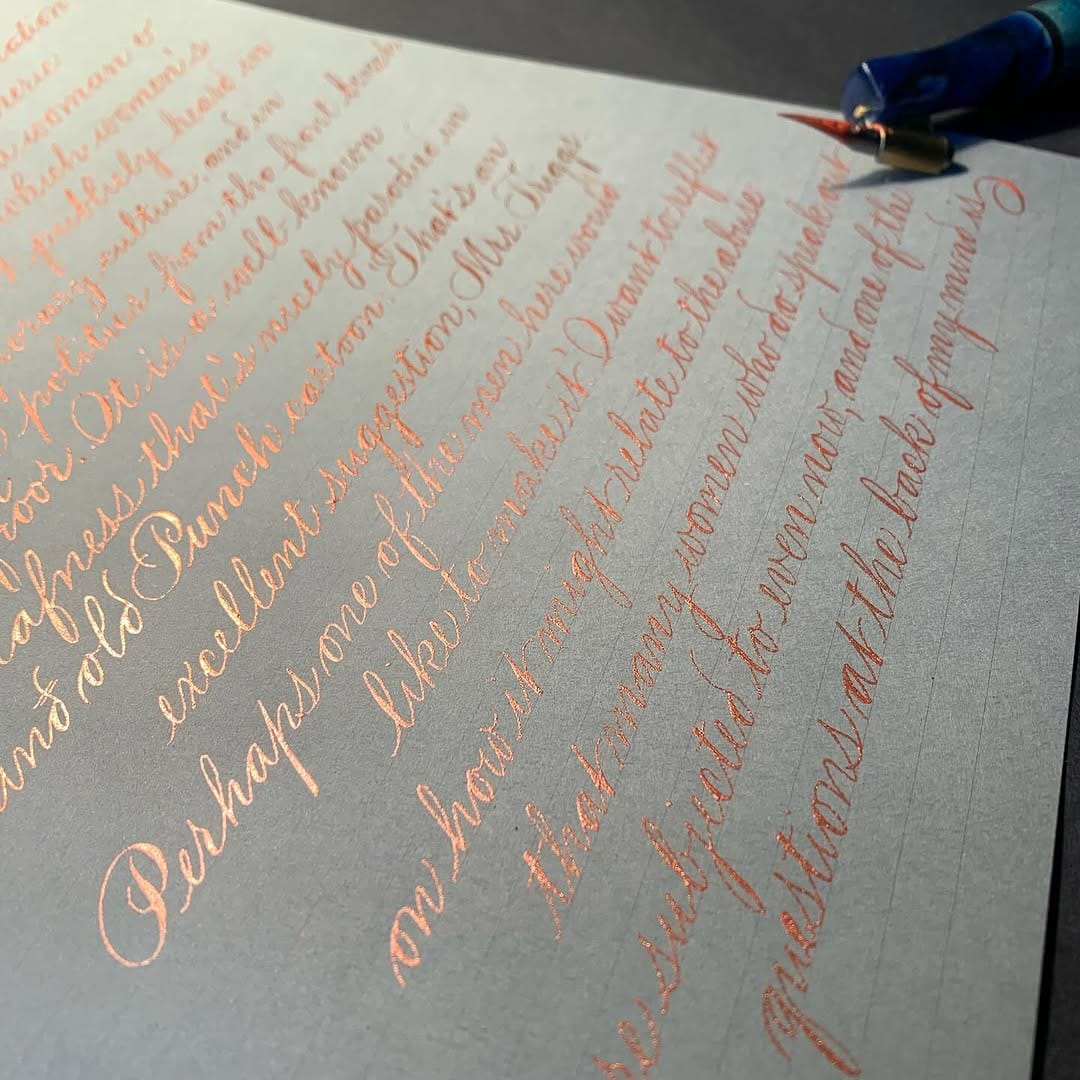 woman &
which women's
publicly heard in
culture, and in
politics from the front bench
It is a well known
that's nicely parodied in
and old Punch cartoon. 'That's an
excellent suggestion, Mrs. Triggs.
Perhaps one of the men here would
like to make it' I want to reflect
on how it might relate to the abuse
that many women who do speak out
re subjected to even now, and one of the
questions at the back of my mind is